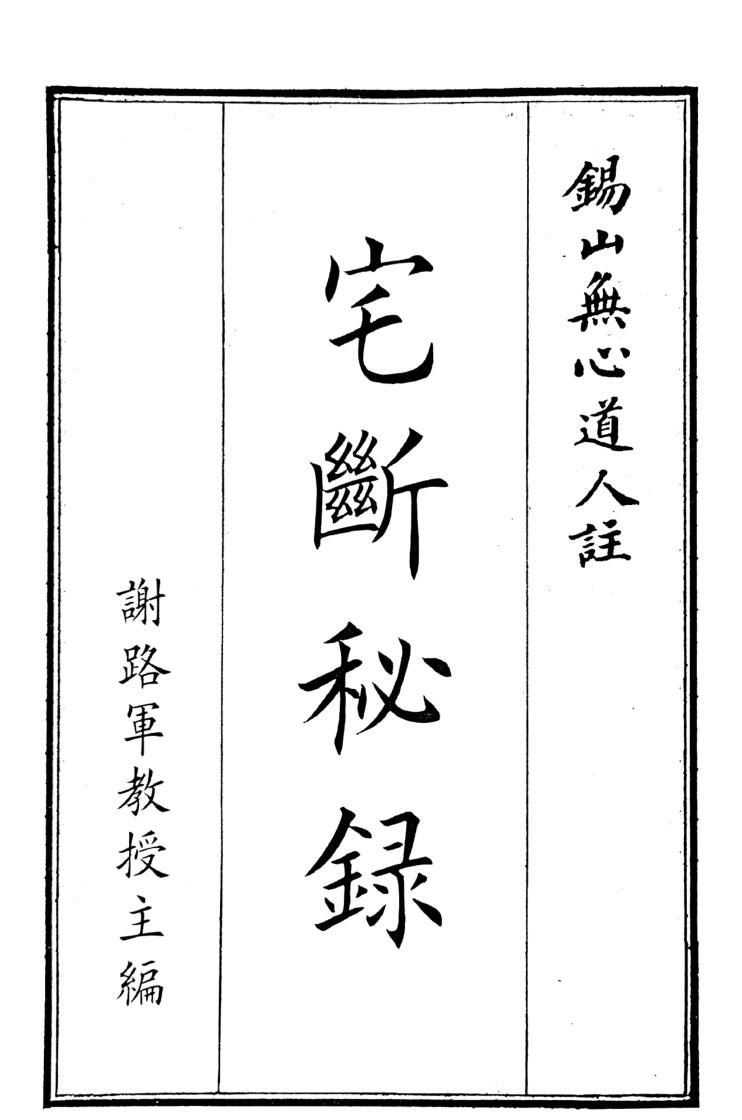 錫山無心道人註
宅斷秘録
謝路軍教授主編